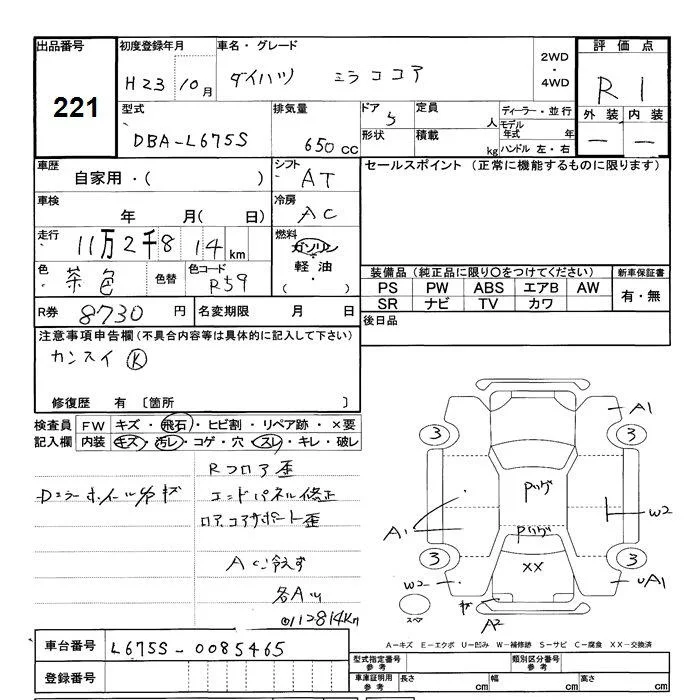 出品番号
221
初度登録年月
H23 10月
車名・グレード
ダイハツ ミラココア
2WD
・
4WD
評価点
R1
外装 内装
— —
型式
DBA-L675S
排気量
650 cc
ドア
5
形状
定員
人
積載
kg
ディーラー・並行
モデル
年式 年
ハンドル 左・右
車歴
自家用・( )
シフト
AT
セールスポイント (正常に機能するものに限ります)
車検
年 月( 日)
冷房
AC
走行
11万2千8 14 km
燃料
ガソリン
軽油
( ・ )
色
茶色
色替
色コード
R59
装備品 (純正品に限り〇をつけてください)
新車保証書
PS PW ABS エアB AW
SR ナビ TV カワ
有・無
R券 8730 円
名変期限 月 日
後日品
注意事項申告欄 (不具合内容等は具体的に記入して下さい)
カンスイ Ⓚ
修復歴 有 〔箇所 〕
検査員
記入欄
FW キズ・飛石・ヒビ割・リペア跡・×要
内装 キズ・汚レ・コゲ・穴・スレ・キレ・破レ
Rフロア歪
エンドパネル修正
コアサポート歪
A/C冷えず
各Aツ
0112814Km
A1
3
3
Pリング
W2
A1
Pリング
3
3
××
W2
UA1
キズ
A2
スペア
A-キズ E-エクボ U-凹み W-補修跡 S-サビ C-腐食 XX-交換済
車台番号
L675S-0085465
登録番号
型式指定番号
参考
類別区分番号
参考
車庫証明用
参考
長さ cm
幅 cm
高さ cm